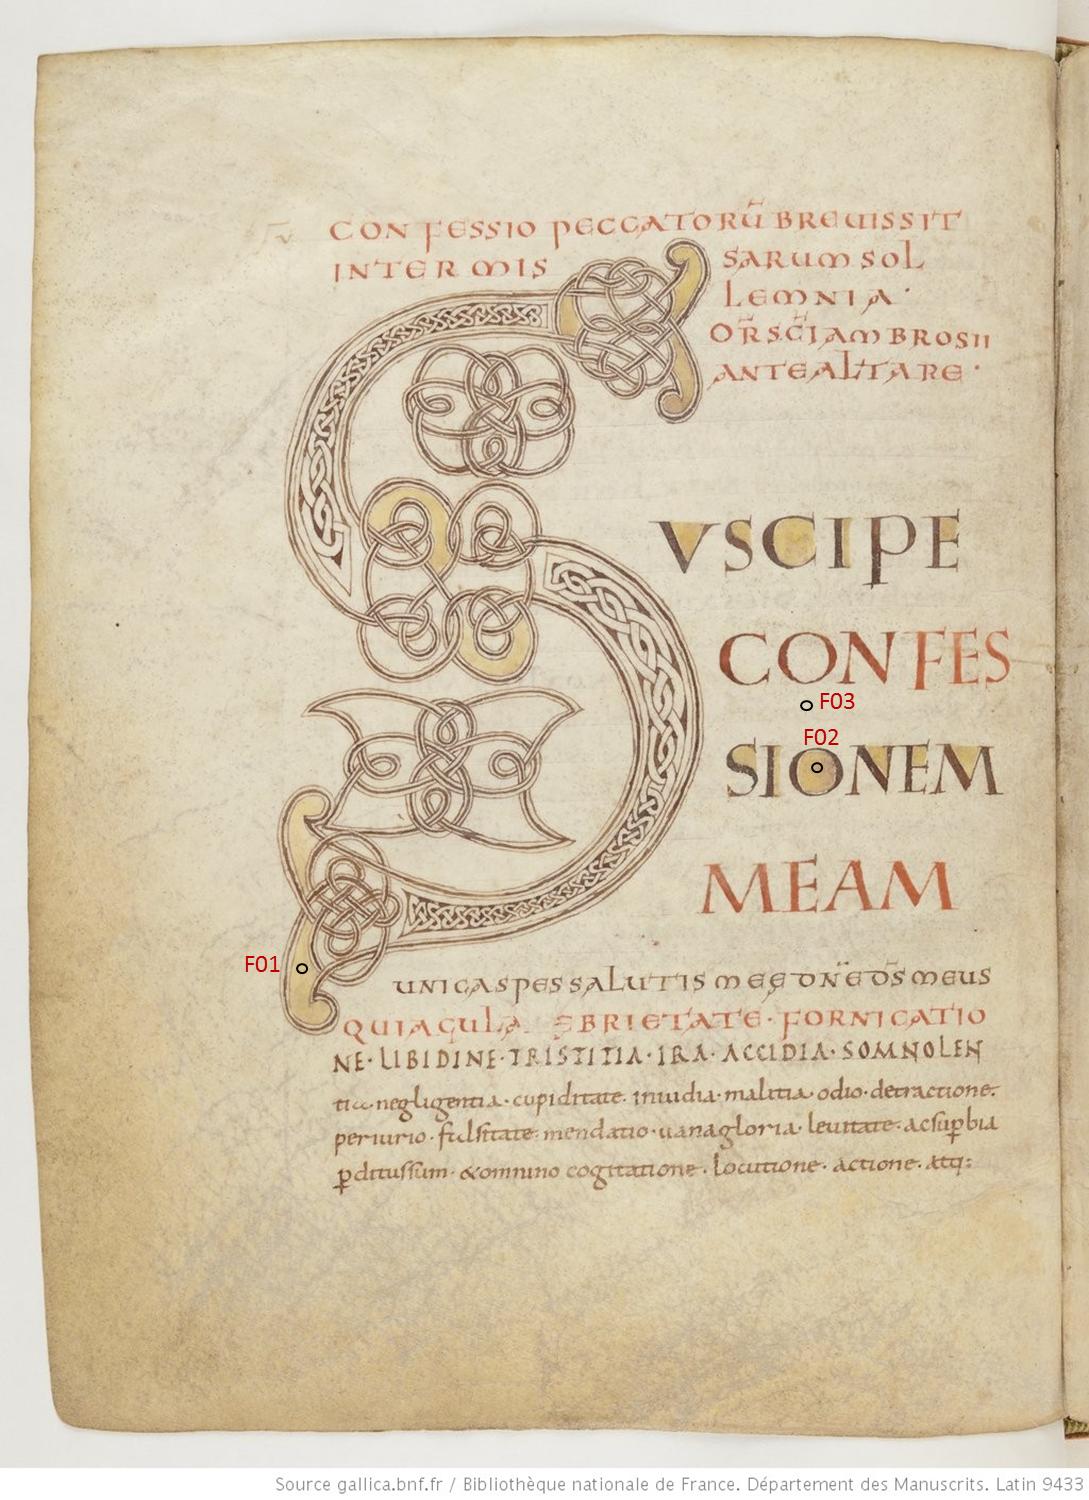 CONFESSIO PECCATORŪ BREUISSIT
INTERMIS SARUM SOL
LEMNIA·
OR̄ SC̄I AMBROSII
ANTE ALTARE·
S
VSCIPE
CONFES
F03
F02
SIONEM
MEAM
F01
UNICA SPES SALUTIS MEE DN̄E DS̄ MEUS
QUIA GULA EBRIETATE· FORNICATIO
NE· LIBIDINE· TRISTITIA· IRA· ACCIDIA· SOMNOLEN
tia· negligentia· cupiditate· inuidia· malitia· odio· detractione·
periurio· falsitate· mendatio· uanagloria· leuitate· ac sup̄bia
p̄ditus sum· & omnino cogitatione· locutione· actione· atq:
Source gallica.bnf.fr / Bibliothèque nationale de France. Département des Manuscrits. Latin 9433